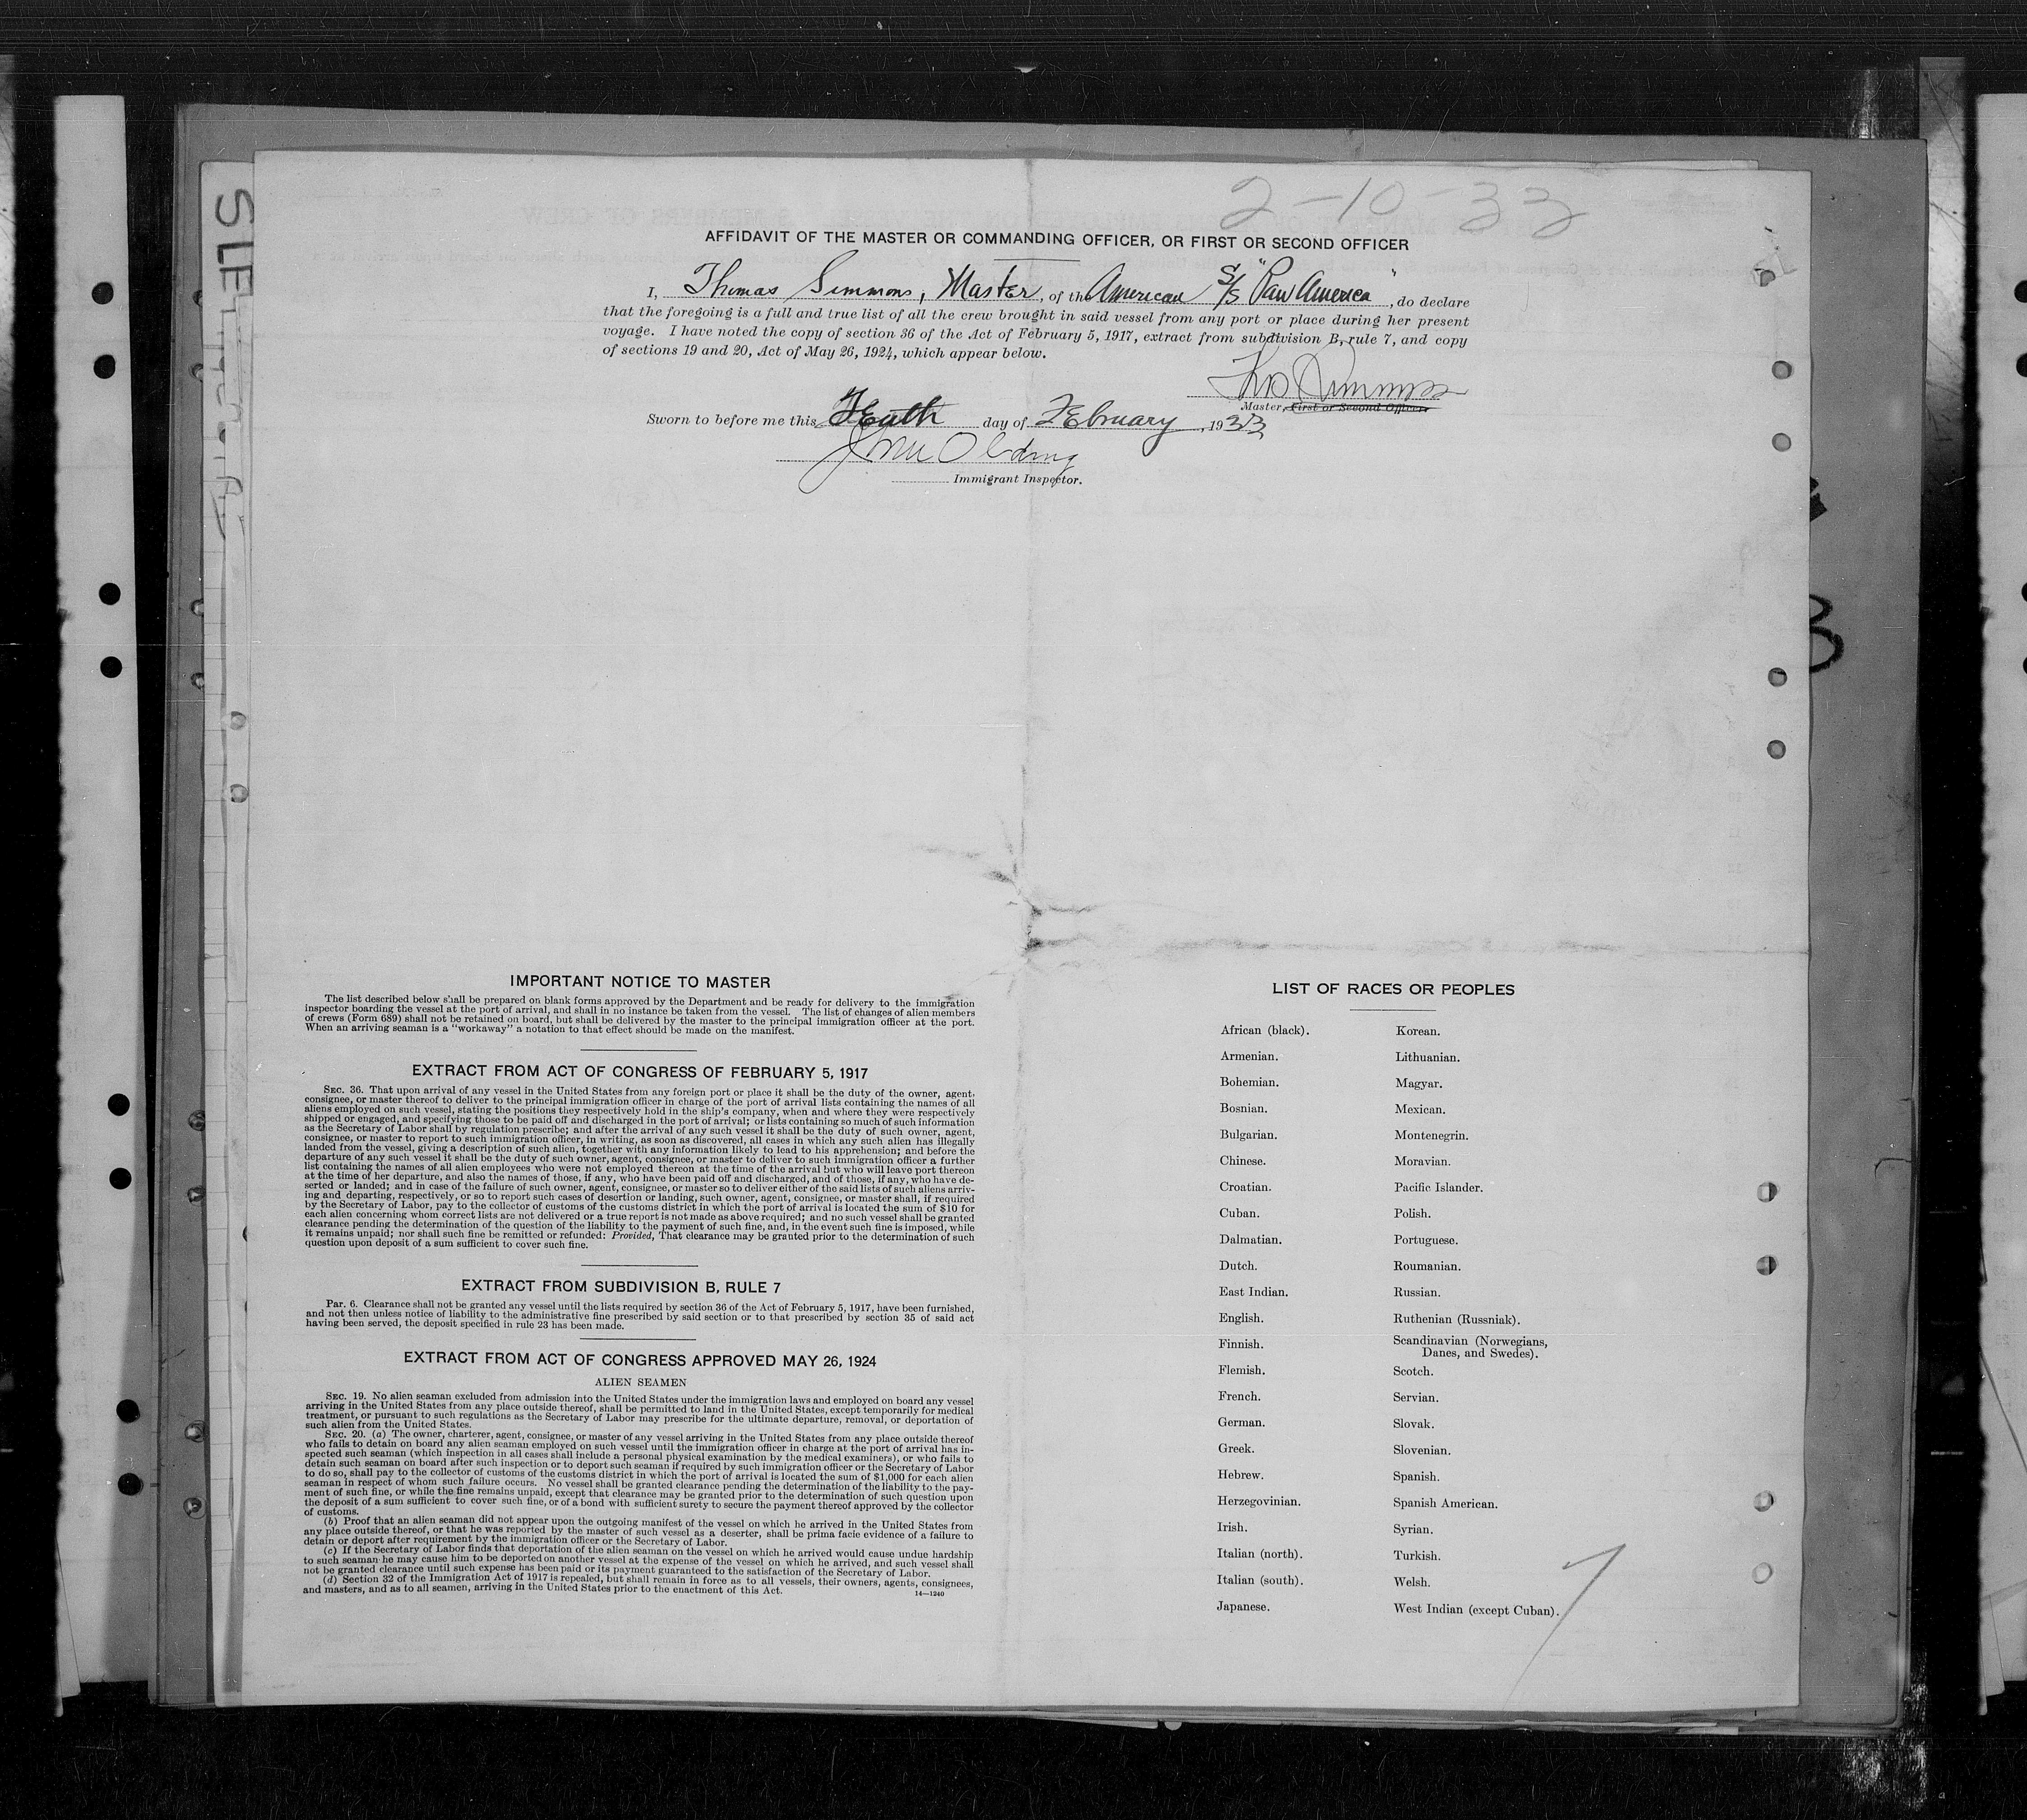 2-10-33
AFFIDAVIT OF THE MASTER OR COMMANDING OFFICER, OR FIRST OR SECOND OFFICER
I, Thomas Simmons, Master, of the American S/S "Pan America", do declare
that the foregoing is a full and true list of all the crew brought in said vessel from any port or place during her present
voyage. I have noted the copy of section 36 of the Act of February 5, 1917, extract from subdivision B, rule 7, and copy
of sections 19 and 20, Act of May 26, 1924, which appear below.
Thos Simmons
Master, First or Second Officer.
Sworn to before me this Tenth day of February, 1933
Immigrant Inspector.
IMPORTANT NOTICE TO MASTER
The list described below shall be prepared on blank forms approved by the Department and be ready for delivery to the immigration
inspector boarding the vessel at the port of arrival, and shall in no instance be taken from the vessel. The list of changes of alien members
of crews (Form 689) shall not be retained on board, but shall be delivered by the master to the principal immigration officer at the port.
When an arriving seaman is a "workaway" a notation to that effect should be made on the manifest.
EXTRACT FROM ACT OF CONGRESS OF FEBRUARY 5, 1917
SEC. 36. That upon arrival of any vessel in the United States from any foreign port or place it shall be the duty of the owner, agent,
consignee, or master thereof to deliver to the principal immigration officer in charge of the port of arrival lists containing the names of all
aliens employed on such vessel, stating the positions they respectively hold in the ship's company, when and where they were respectively
shipped or engaged, and specifying those to be paid off and discharged in the port of arrival; or lists containing so much of such information
as the Secretary of Labor shall by regulation prescribe; and after the arrival of any such vessel it shall be the duty of such owner, agent,
consignee, or master to report to such immigration officer, in writing, as soon as discovered, all cases in which any such alien has illegally
landed from the vessel, giving a description of such alien, together with any information likely to lead to his apprehension; and before the
departure of any such vessel it shall be the duty of such owner, agent, consignee, or master to deliver to such immigration officer a further
list containing the names of all alien employees who were not employed thereon at the time of the arrival but who will leave port thereon
at the time of her departure, and also the names of those, if any, who have been paid off and discharged, and of those, if any, who have de-
serted or landed; and in case of the failure of such owner, agent, consignee, or master so to deliver either of the said lists of such aliens arriv-
ing and departing, respectively, or so to report such cases of desertion or landing, such owner, agent, consignee, or master shall, if required
by the Secretary of Labor, pay to the collector of customs of the customs district in which the port of arrival is located the sum of $10 for
each alien concerning whom correct lists are not delivered or a true report is not made as above required; and no such vessel shall be granted
clearance pending the determination of the question of the liability to the payment of such fine, and, in the event such fine is imposed, while
it remains unpaid; nor shall such fine be remitted or refunded: Provided, That clearance may be granted prior to the determination of such
question upon deposit of a sum sufficient to cover such fine.
EXTRACT FROM SUBDIVISION B, RULE 7
Par. 6. Clearance shall not be granted any vessel until the lists required by section 36 of the Act of February 5, 1917, have been furnished,
and not then unless notice of liability to the administrative fine prescribed by said section or to that prescribed by section 35 of said act
having been served, the deposit specified in rule 23 has been made.
EXTRACT FROM ACT OF CONGRESS APPROVED MAY 26, 1924
ALIEN SEAMEN
SEC. 19. No alien seaman excluded from admission into the United States under the immigration laws and employed on board any vessel
arriving in the United States from any place outside thereof, shall be permitted to land in the United States, except temporarily for medical
treatment, or pursuant to such regulations as the Secretary of Labor may prescribe for the ultimate departure, removal, or deportation of
such alien from the United States.
SEC. 20. (a) The owner, charterer, agent, consignee, or master of any vessel arriving in the United States from any place outside thereof
who fails to detain on board any alien seaman employed on such vessel until the immigration officer in charge at the port of arrival has in-
spected such seaman (which inspection in all cases shall include a personal physical examination by the medical examiners), or who fails to
detain such seaman on board after such inspection or to deport such seaman if required by such immigration officer or the Secretary of Labor
to do so, shall pay to the collector of customs of the customs district in which the port of arrival is located the sum of $1,000 for each alien
seaman in respect of whom such failure occurs. No vessel shall be granted clearance pending the determination of the liability to the pay-
ment of such fine, or while the fine remains unpaid, except that clearance may be granted prior to the determination of such question upon
the deposit of a sum sufficient to cover such fine, or of a bond with sufficient surety to secure the payment thereof approved by the collector
of customs.
(b) Proof that an alien seaman did not appear upon the outgoing manifest of the vessel on which he arrived in the United States from
any place outside thereof, or that he was reported by the master of such vessel as a deserter, shall be prima facie evidence of a failure to
detain or deport after requirement by the immigration officer or the Secretary of Labor.
(c) If the Secretary of Labor finds that deportation of the alien seaman on the vessel on which he arrived would cause undue hardship
to such seaman he may cause him to be deported on another vessel at the expense of the vessel on which he arrived, and such vessel shall
not be granted clearance until such expense has been paid or its payment guaranteed to the satisfaction of the Secretary of Labor.
(d) Section 32 of the Immigration Act of 1917 is repealed, but shall remain in force as to all vessels, their owners, agents, consignees,
and masters, and as to all seamen, arriving in the United States prior to the enactment of this Act.
14—1240
LIST OF RACES OR PEOPLES
African (black). Korean.
Armenian. Lithuanian.
Bohemian. Magyar.
Bosnian. Mexican.
Bulgarian. Montenegrin.
Chinese. Moravian.
Croatian. Pacific Islander.
Cuban. Polish.
Dalmatian. Portuguese.
Dutch. Roumanian.
East Indian. Russian.
English. Ruthenian (Russniak).
Finnish. Scandinavian (Norwegians,
Danes, and Swedes).
Flemish. Scotch.
French. Servian.
German. Slovak.
Greek. Slovenian.
Hebrew. Spanish.
Herzegovinian. Spanish American.
Irish. Syrian.
Italian (north). Turkish.
Italian (south). Welsh.
Japanese. West Indian (except Cuban).
7